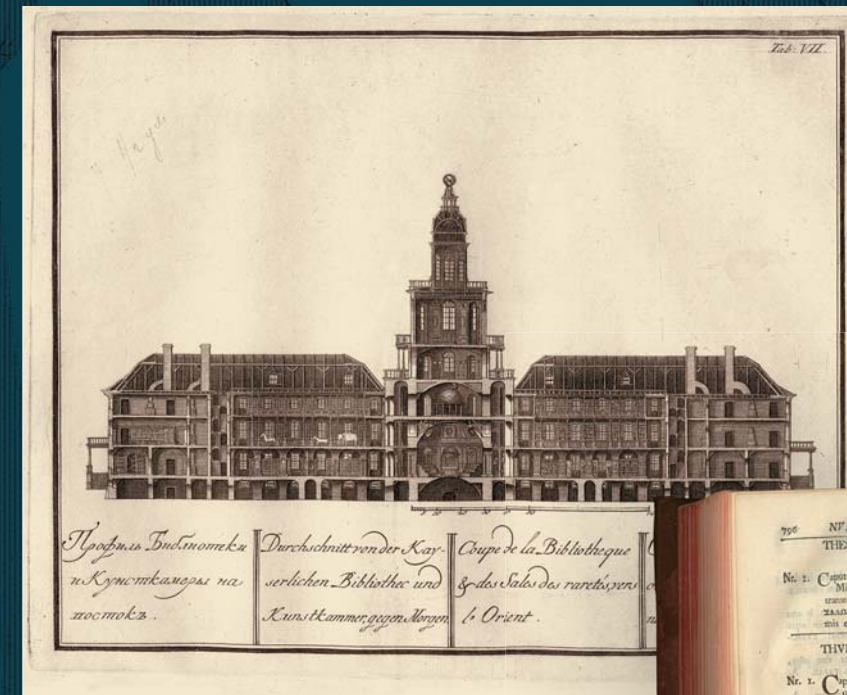 Tab: VII.
Профиль Библиотеки
и Кунсткамеры на
востокъ.
Durchschnitt von der Kay-
serlichen Bibliothec und
Kunstkammer, gegen Morgen
Coupe de la Bibliotheque
& des Sales des raretés, vers
l'Orient.
796
THE
Nr. 2. Caput
THV
Nr. 1.